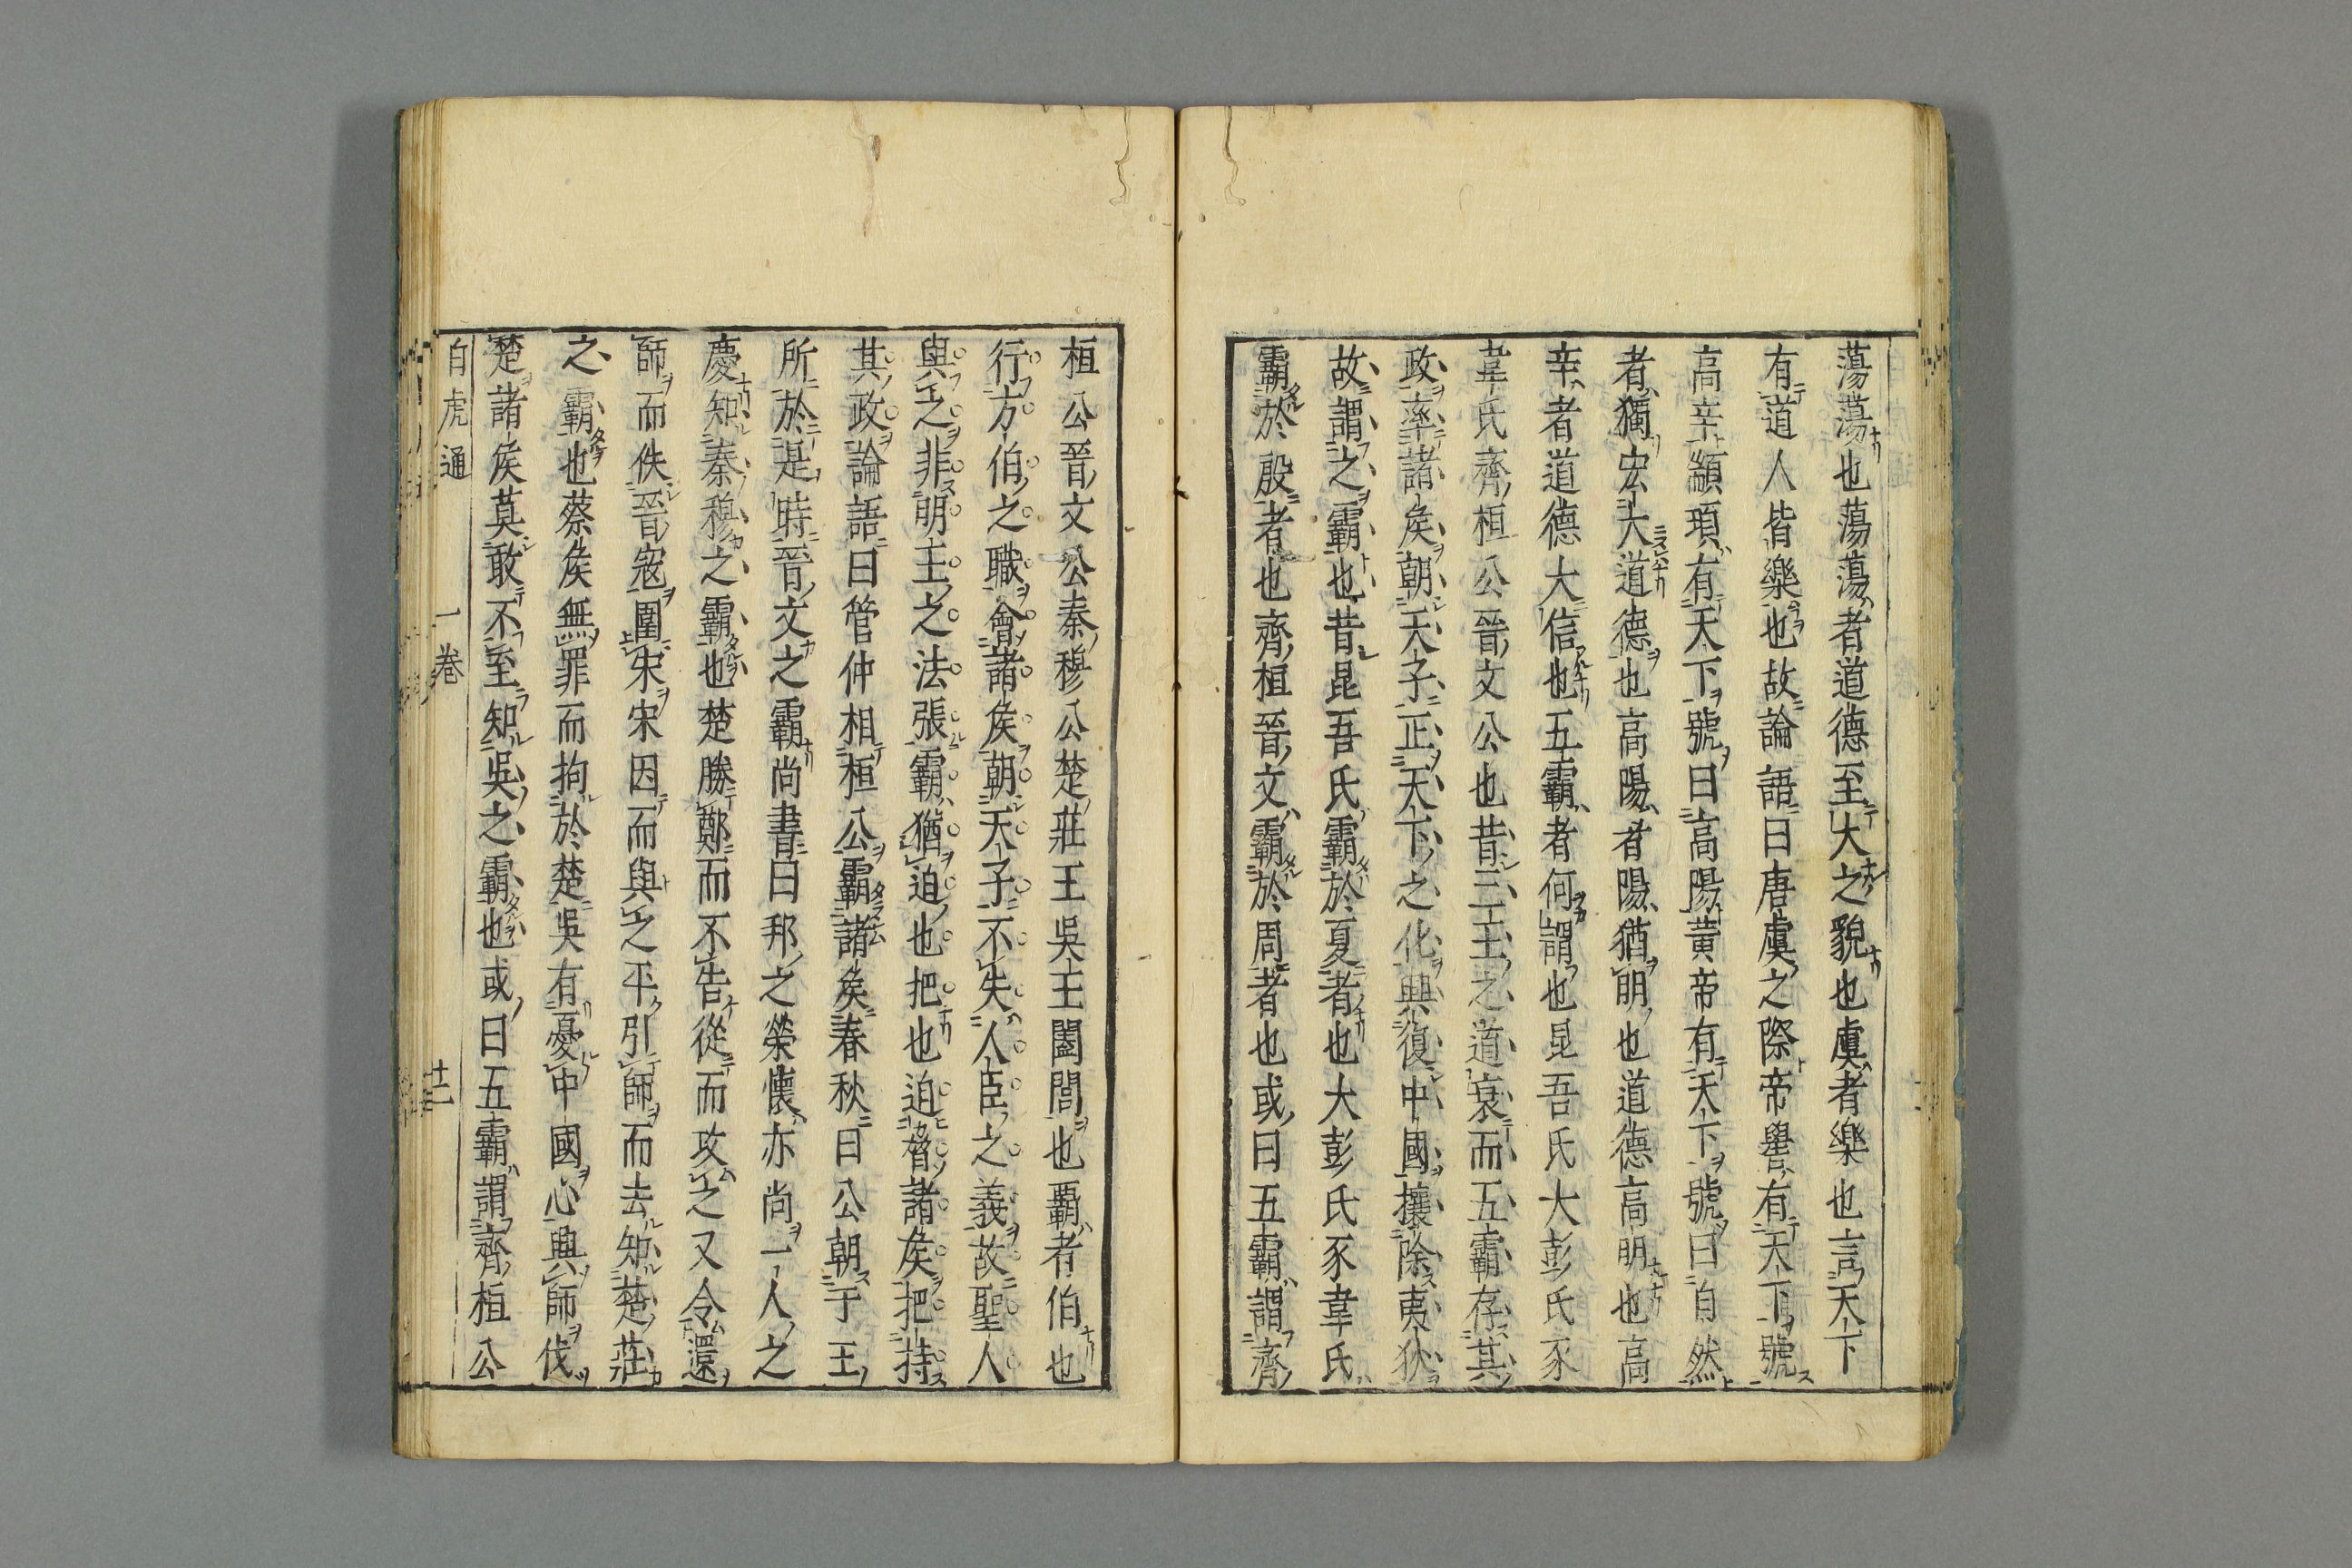 蕩蕩也蕩蕩者道德至大之貌也虞者樂也言天下
有道人皆樂也故論語曰唐虞之際帝嚳有天下號
高辛顓頊有天下號曰高陽黃帝有天下號曰自然
者獨宏大道德也高陽者陽猶明也道德高明也高
辛者道德大信也五霸者何謂也昆吾氏大彭氏豕
韋氏齊桓公晉文公也昔三王之道衰而五霸存其
政率諸矦朝天子正天下之化興復中國攘除夷狄
故謂之霸也昔昆吾氏霸於夏者也大彭氏豕韋氏
霸於殷者也齊桓晉文霸於周者也或曰五霸謂齊
桓公晉文公秦穆公楚莊王吳王闔閭也霸者伯也
行方伯之職會諸矦朝天子不失人臣之義故聖人
與之非明王之法張霸猶迫也把也迫脅諸矦把持
其政論語曰管仲相桓公霸諸矦春秋曰公朝于王
所於是時晉文之霸尚書曰邦之榮懷亦尚一人之
慶知秦穆之霸也楚勝鄭而不告從而攻之又令還
師而佚晉寇圍宋宋因而與之平引師而去知楚莊
之霸也蔡矦無罪而拘於楚吳有憂中國心興師伐
楚諸矦莫敢不至知吳之霸也或曰五霸謂齊桓公
白虎通 一卷 十二